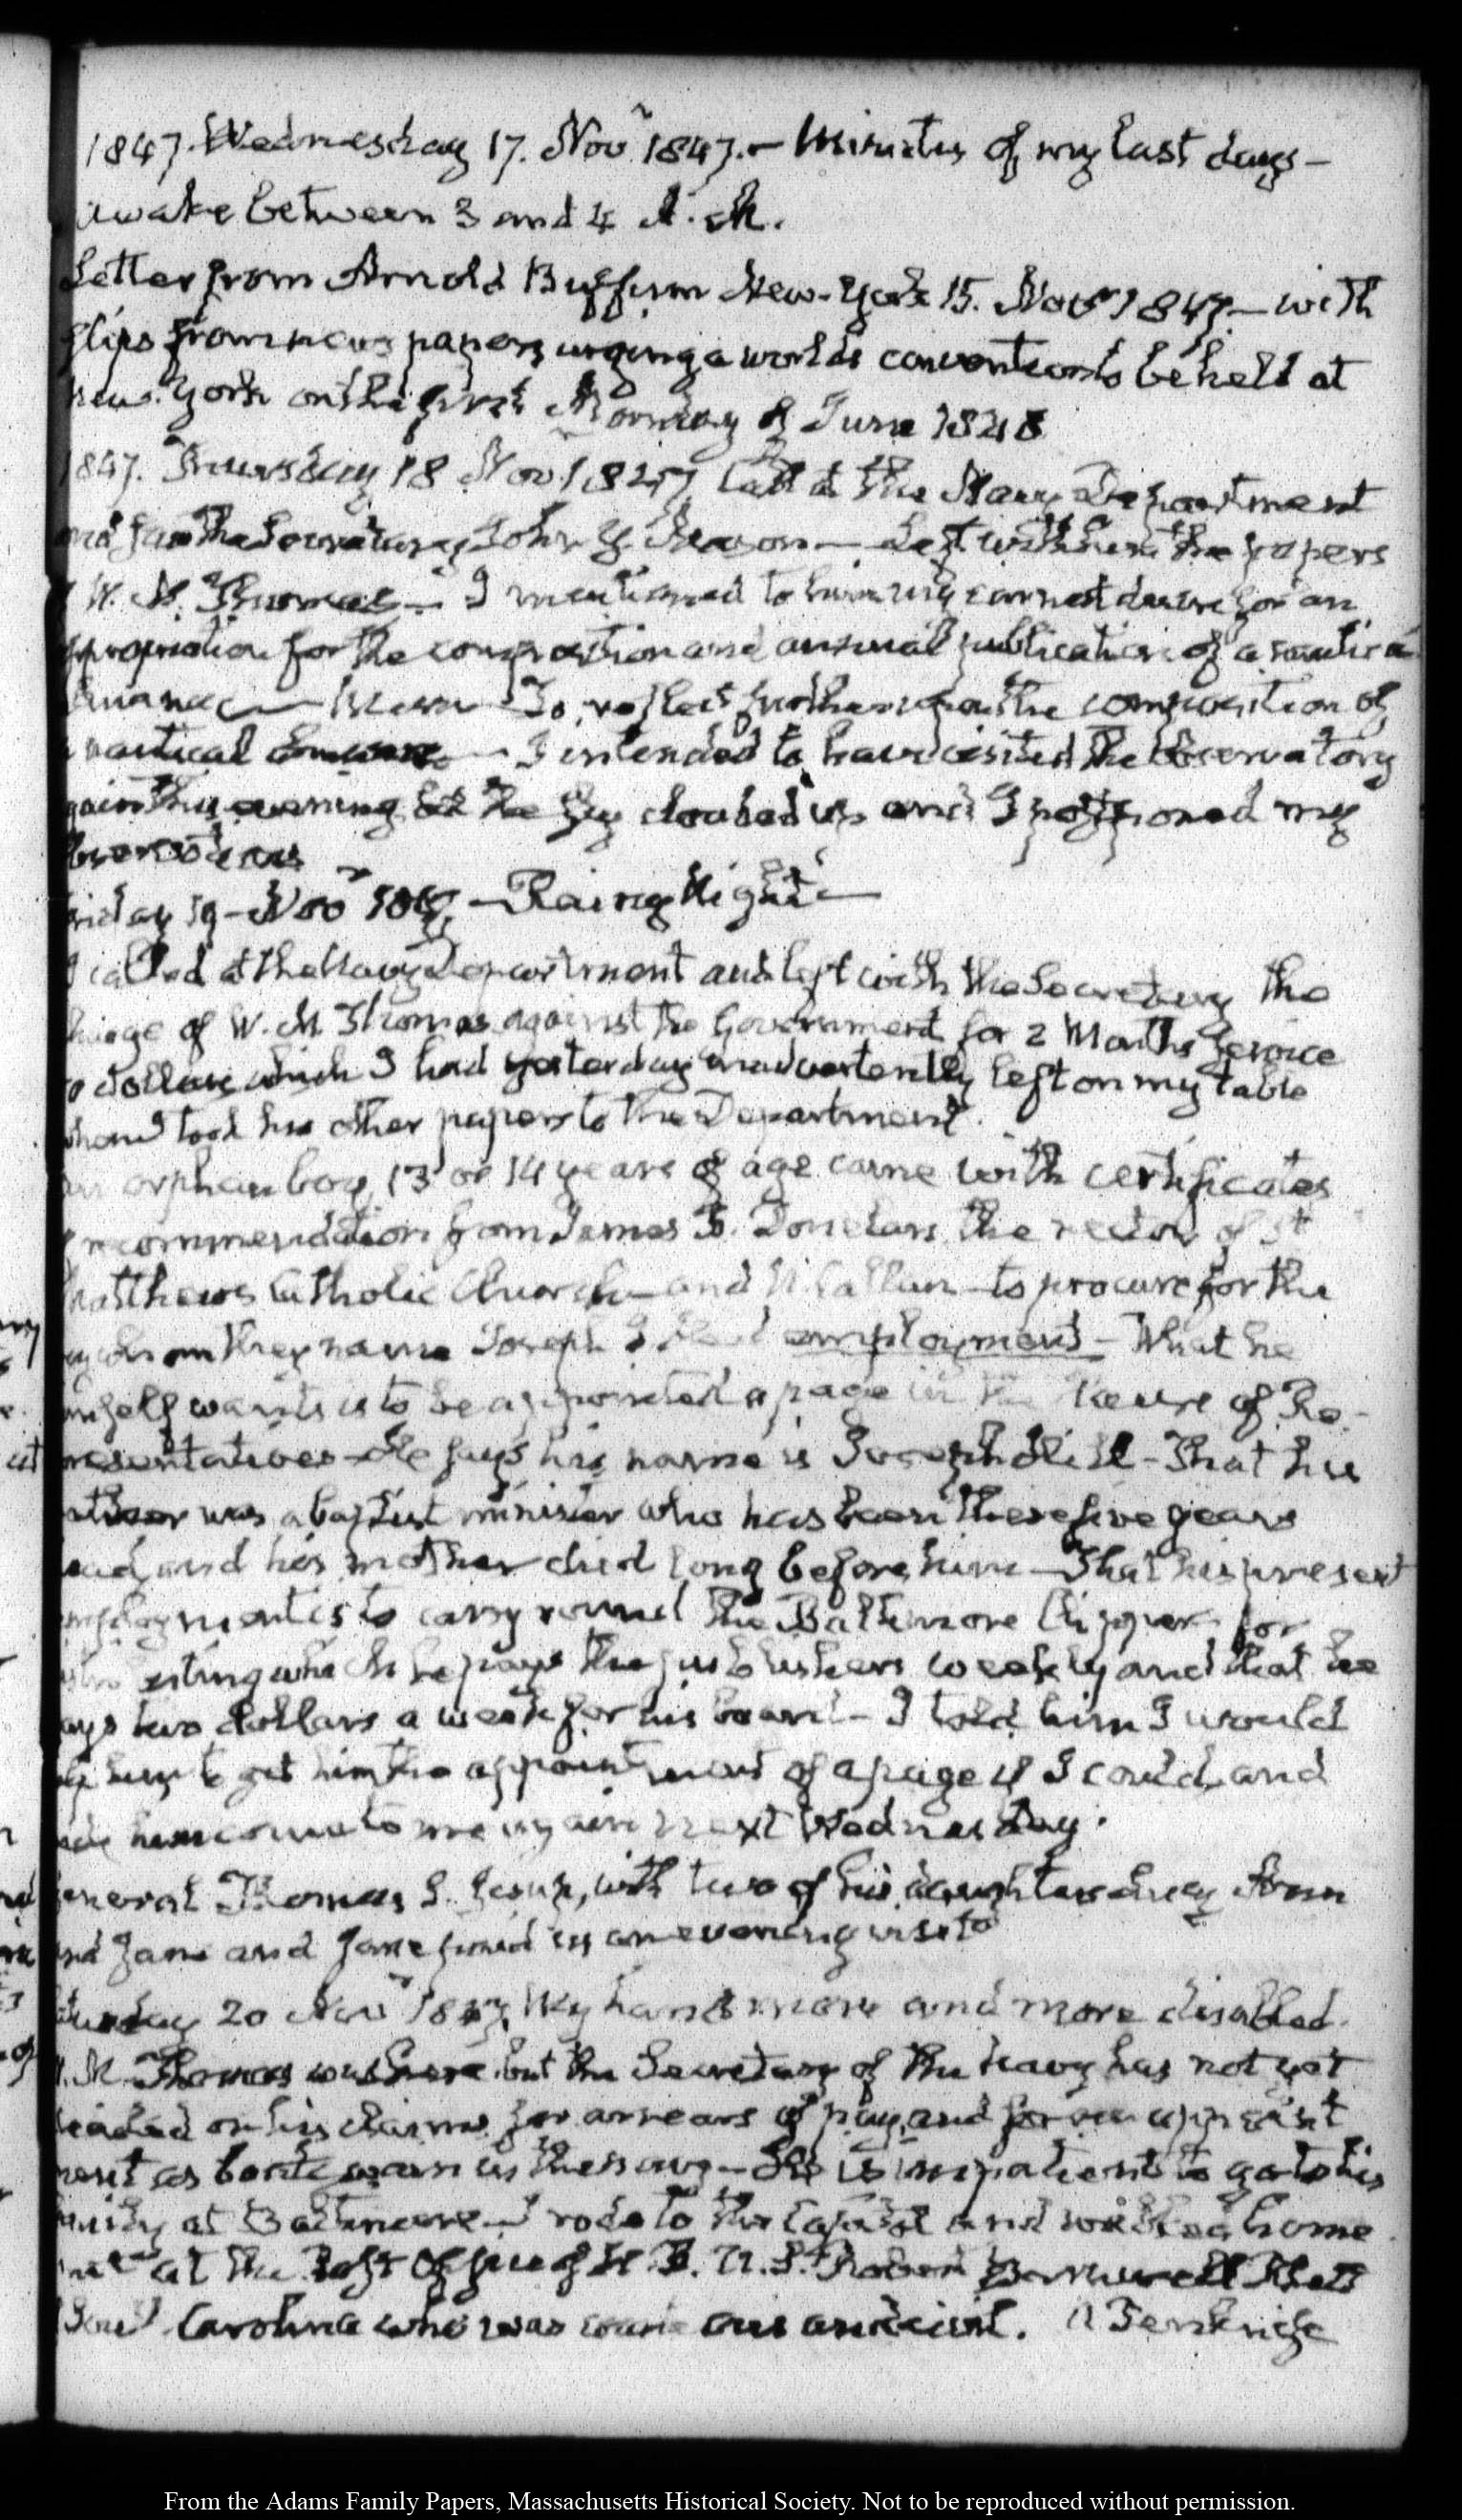 1847. Wednesday 17. Novr 1847. – Minutes of my last days –
awake between 3 and 4 A.M.
Letter from Arnold Buffum New-York 15. Novr 1847. – with
slips from news papers urging a worlds convention to be held at
New-York on the first Monday of June 1848
1847. Thursday 18 Novr 1847 Call at the Navy Department
and saw the Secretary John Y. Mason – Left with him the papers
W. M. Thomas – I mentioned to him my earnest desire for an
appropriation for the composition and annual publication of a nautica
to reflect further upon the composition of
nautical – I intended to have visited the Observatory
again this evening but the sky clouded up and I postponed my
observations
Friday 19 – Novr – Rainy Night –
I called at the Navy Department and left with the Secretary the
charge of W. M. Thomas against the Government for 2 Months Service
dollars which I had yesterday inadvertently left on my table
when I took his other papers to the Department.
an orphan boy, 13 or 14 years of age came with certificates
recommendation from James B. Donelan the rector of St
Matthews Catholic Church – and N. Callan – to procure for the
whom they name Joseph employment – What he
himself wants is to be appointed a page in the House of Re-
presentatives – He says his name is Joseph – That his
father was a baptist minister who has been these five years
dead, and his mother died long before him – That his present
employment is to carry round the Baltimore Clipper for
which he pays the publishers weekly and that he
pays two dollars a week for his board – I told him I would
try to get him the appointment of a page if I could, and
him come to me again next Wednesday.
General Thomas S. Jesup, with two of his daughters Ann
and Jane and Jane paid us an evening visit
Saturday 20 Novr 1847. My hand more and more disabled.
W. M. Thomas was here but the Secretary of the Navy has not yet
decided on his claims for arrears of pay, and for an appoint
ment as boatswain in the navy – He is impatient to go to his
family at Baltimore – I rode to the Capitol and walked home
met at the Post Office of H. R. U.S. Robert Barnwell Rhett
South Carolina who was